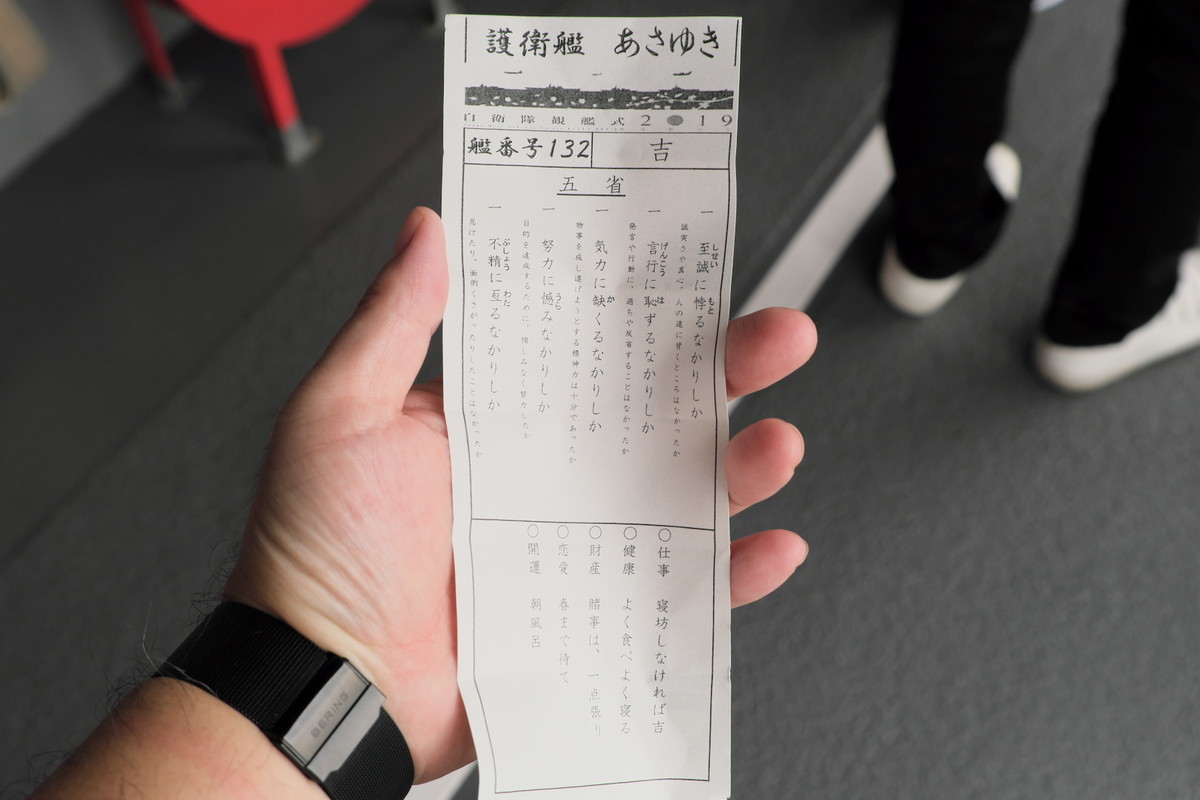 護衛艦 あさゆき
自衛隊観艦式2●19
艦番号132
吉
五 省
一 至誠に悖るなかりしか
しせい
もと
誠実さや真心、人の道に背くところはなかったか
一 言行に恥ずるなかりしか
げんこう
は
発言や行動に、過ちや反省することはなかったか
一 気力に缺くるなかりしか
か
物事を成し遂げようとする精神力は十分であったか
一 努力に憾みなかりしか
うら
目的を達成するために、惜しみなく努力したか
一 不精に亙るなかりしか
ぶしょう
わた
怠けたり、面倒くさがったりしたことはなかったか
○仕事 寝坊しなければ吉
○健康 よく食べよく寝る
○財産 賭事は、一点張り
○恋愛 春まで待て
○開運 朝風呂
BERING